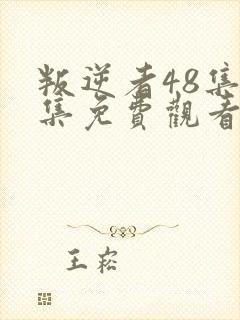 叛逆者48集
集免費觀看
王崧